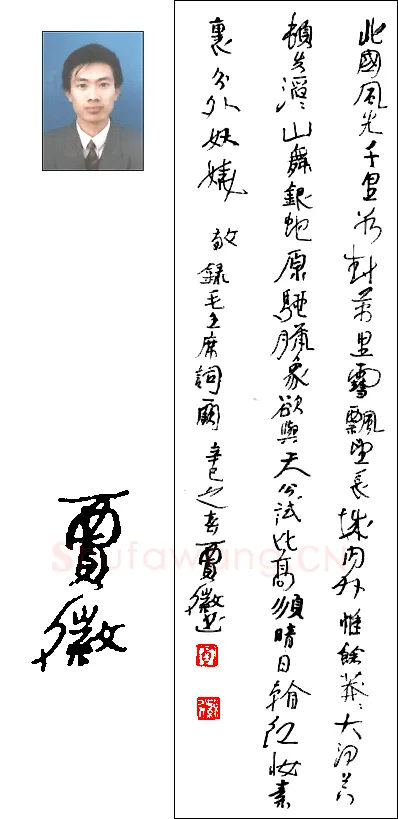 北國風光千里冰封萬里雪飄望長城内外惟餘莽〻大河上下
頓失滔〻山舞銀蛇原馳臘象欲與天公試比高須晴日看紅妝素
裹分外妖嬈 敬録毛主席詞一闋 辛巳之春賈徽書
賈徽
Shufawang.CN